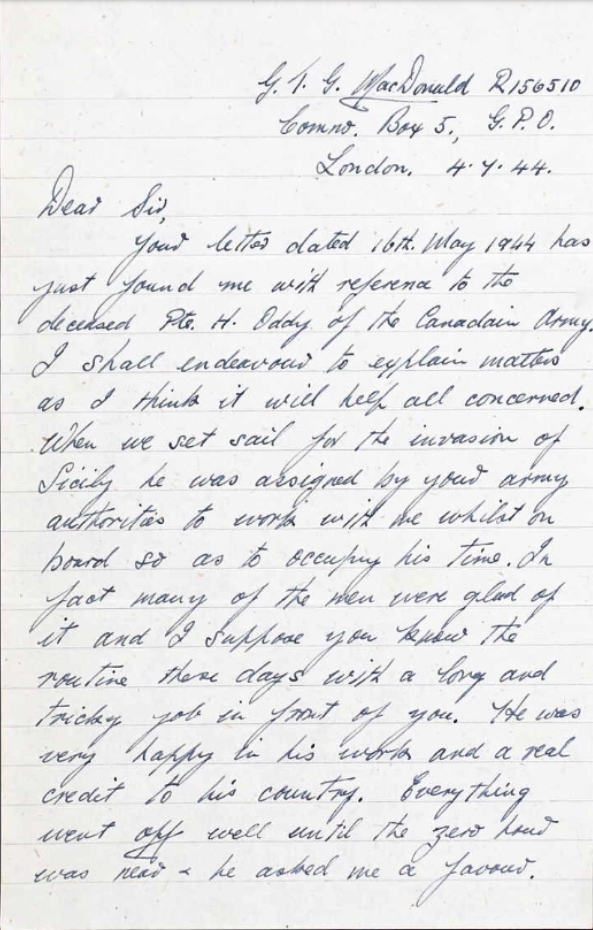 G. T. G. MacDonald R156510
Comno. Box 5., G.P.O.
London. 4.7.44.
Dear Sir,
Your letter dated 16th. May 1944 has
just found me with reference to the
deceased Pte. H. Oddy of the Canadain Army.
I shall endeavour to explain matters
as I think it will help all concerned.
When we set sail for the invasion of
Sicily he was assigned by your army
authorities to work with me whilst on
board so as to occupy his time. In
fact many of the men were glad of
it and I suppose you know the
routine these days with a long and
tricky job in front of you. He was
very happy in his work and a real
credit to his country. Everything
went off well until the zero hour
was near & he asked me a favour.